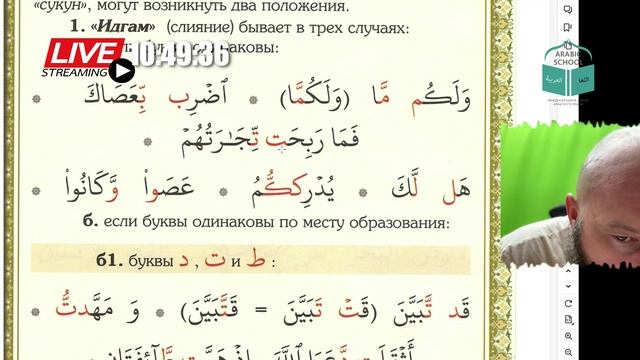 «сукун», могут возникнуть два положения.
1. «Идгам» (слияние) бывает в трех случаях:
буквы одинаковы:
LIVE
STREAMING
10:49:36
ARABIC
SCHOOL
وَلَكُم مَّا (وَلَكُمَّا) * ٱضْرِب بِّعَصَاكَ *
فَمَا رَبِحَت تِّجَٰرَتُهُمْ *
هَل لَّكَ * يُدْرِككُّمُ * عَصَوا۟ وَّكَانُوا۟ *
б. если буквы одинаковы по месту образования:
б1. буквы د , ت и ط :
قَد تَّبَيَّنَ (قَتْ تَبَيَّنَ = قَتَّبَيَّنَ) * وَ مَهَّدتُّ *